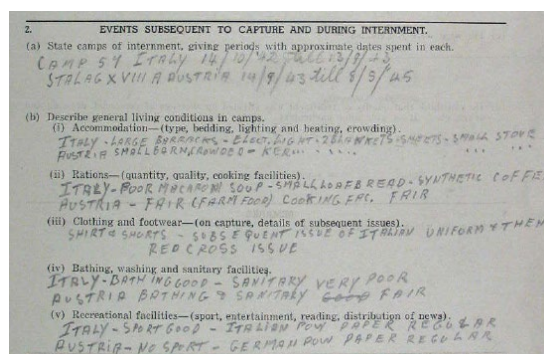 2. EVENTS SUBSEQUENT TO CAPTURE AND DURING INTERNMENT.
(a) State camps of internment, giving periods with approximate dates spent in each.
CAMP 57 ITALY 14/10/42 till /43
STALAG XVIII A AUSTRIA 14/9/43 till 8/5/45
(b) Describe general living conditions in camps.
(i) Accommodation—(type, bedding, lighting and heating, crowding).
ITALY - LARGE BARRACKS - ELECT. LIGHT - 2 BLANKETS - SHEETS - SMALL STOVE
AUSTRIA SMALL BARN, CROWDED - KER... " " " " "
(ii) Rations—(quantity, quality, cooking facilities).
ITALY - POOR MACARONI SOUP - SMALL LOAF BREAD - SYNTHETIC COFFE
AUSTRIA - FAIR (FARM FOOD) COOKING FAC. FAIR
(iii) Clothing and footwear—(on capture, details of subsequent issues).
SHIRT & SHORTS - SUBSEQUENT ISSUE OF ITALIAN UNIFORM & THEN
RED CROSS ISSUE
(iv) Bathing, washing and sanitary facilities.
ITALY - BATHING GOOD - SANITARY VERY POOR
AUSTRIA BATHING & SANITARY FAIR
(v) Recreational facilities—(sport, entertainment, reading, distribution of news).
ITALY - SPORT GOOD - ITALIAN POW PAPER REGULAR
AUSTRIA - NO SPORT - GERMAN POW PAPER REGULAR